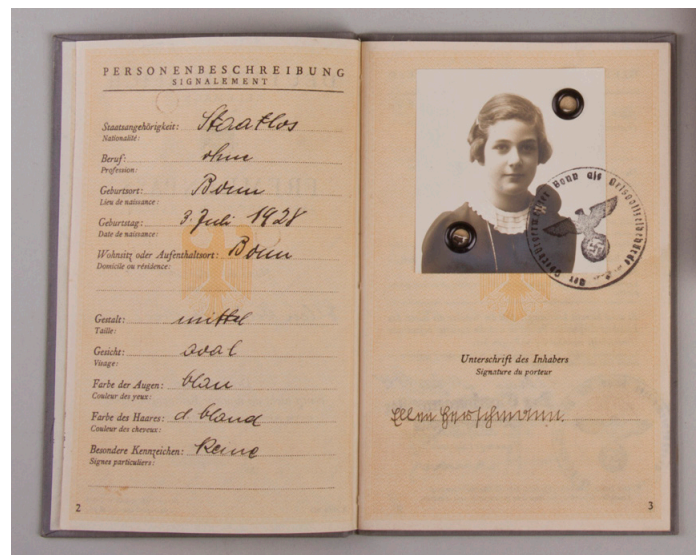 PERSONENBESCHREIBUNG
SIGNALEMENT
Staatsangehörigkeit: Staatlos
Nationalité:
Beruf: ohne
Profession:
Geburtsort: Bonn
Lieu de naissance:
Geburtstag: 3. Juli 1928
Date de naissance:
Wohnsitz oder Aufenthaltsort: Bonn
Domicile ou résidence:
Gestalt: mittel
Taille:
Gesicht: oval
Visage:
Farbe der Augen: blau
Couleur des yeux:
Farbe des Haares: d. blond
Couleur des cheveux:
Besondere Kennzeichen: Keine
Signes particuliers:
2
Der Oberbürgermeister Bonn als Ortspolizeibehörde
Unterschrift des Inhabers
Signature du porteur
Ellen Herschmann.
3